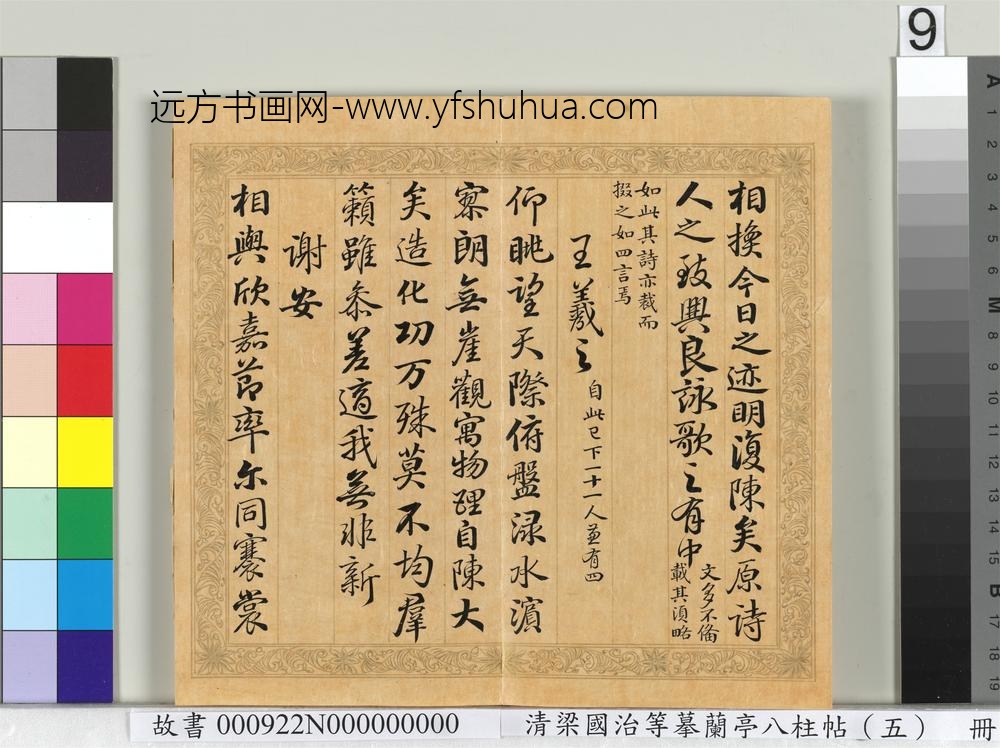 9
远方书画网-www.yfshuhua.com
相換今日之迹明復陳矣原詩
人之致興良詠歌之有由文多不備
載其湏略
如此其詩亦裁而
掇之如四言焉
王羲之自此已下一十一人並有四
仰眺望天際俯盤渌水濱
寥朗無崖觀寓物理自陳大
矣造化功万殊莫不均羣
籟雖叅差適我無非新
谢安
相與欣嘉莭率尓同褰裳
故書 000922N000000000
清梁國治等摹蘭亭八柱帖（五） 冊
A
1
2
3
4
5
6
M
8
9
10
11
12
13
14
15
B
17
18
19